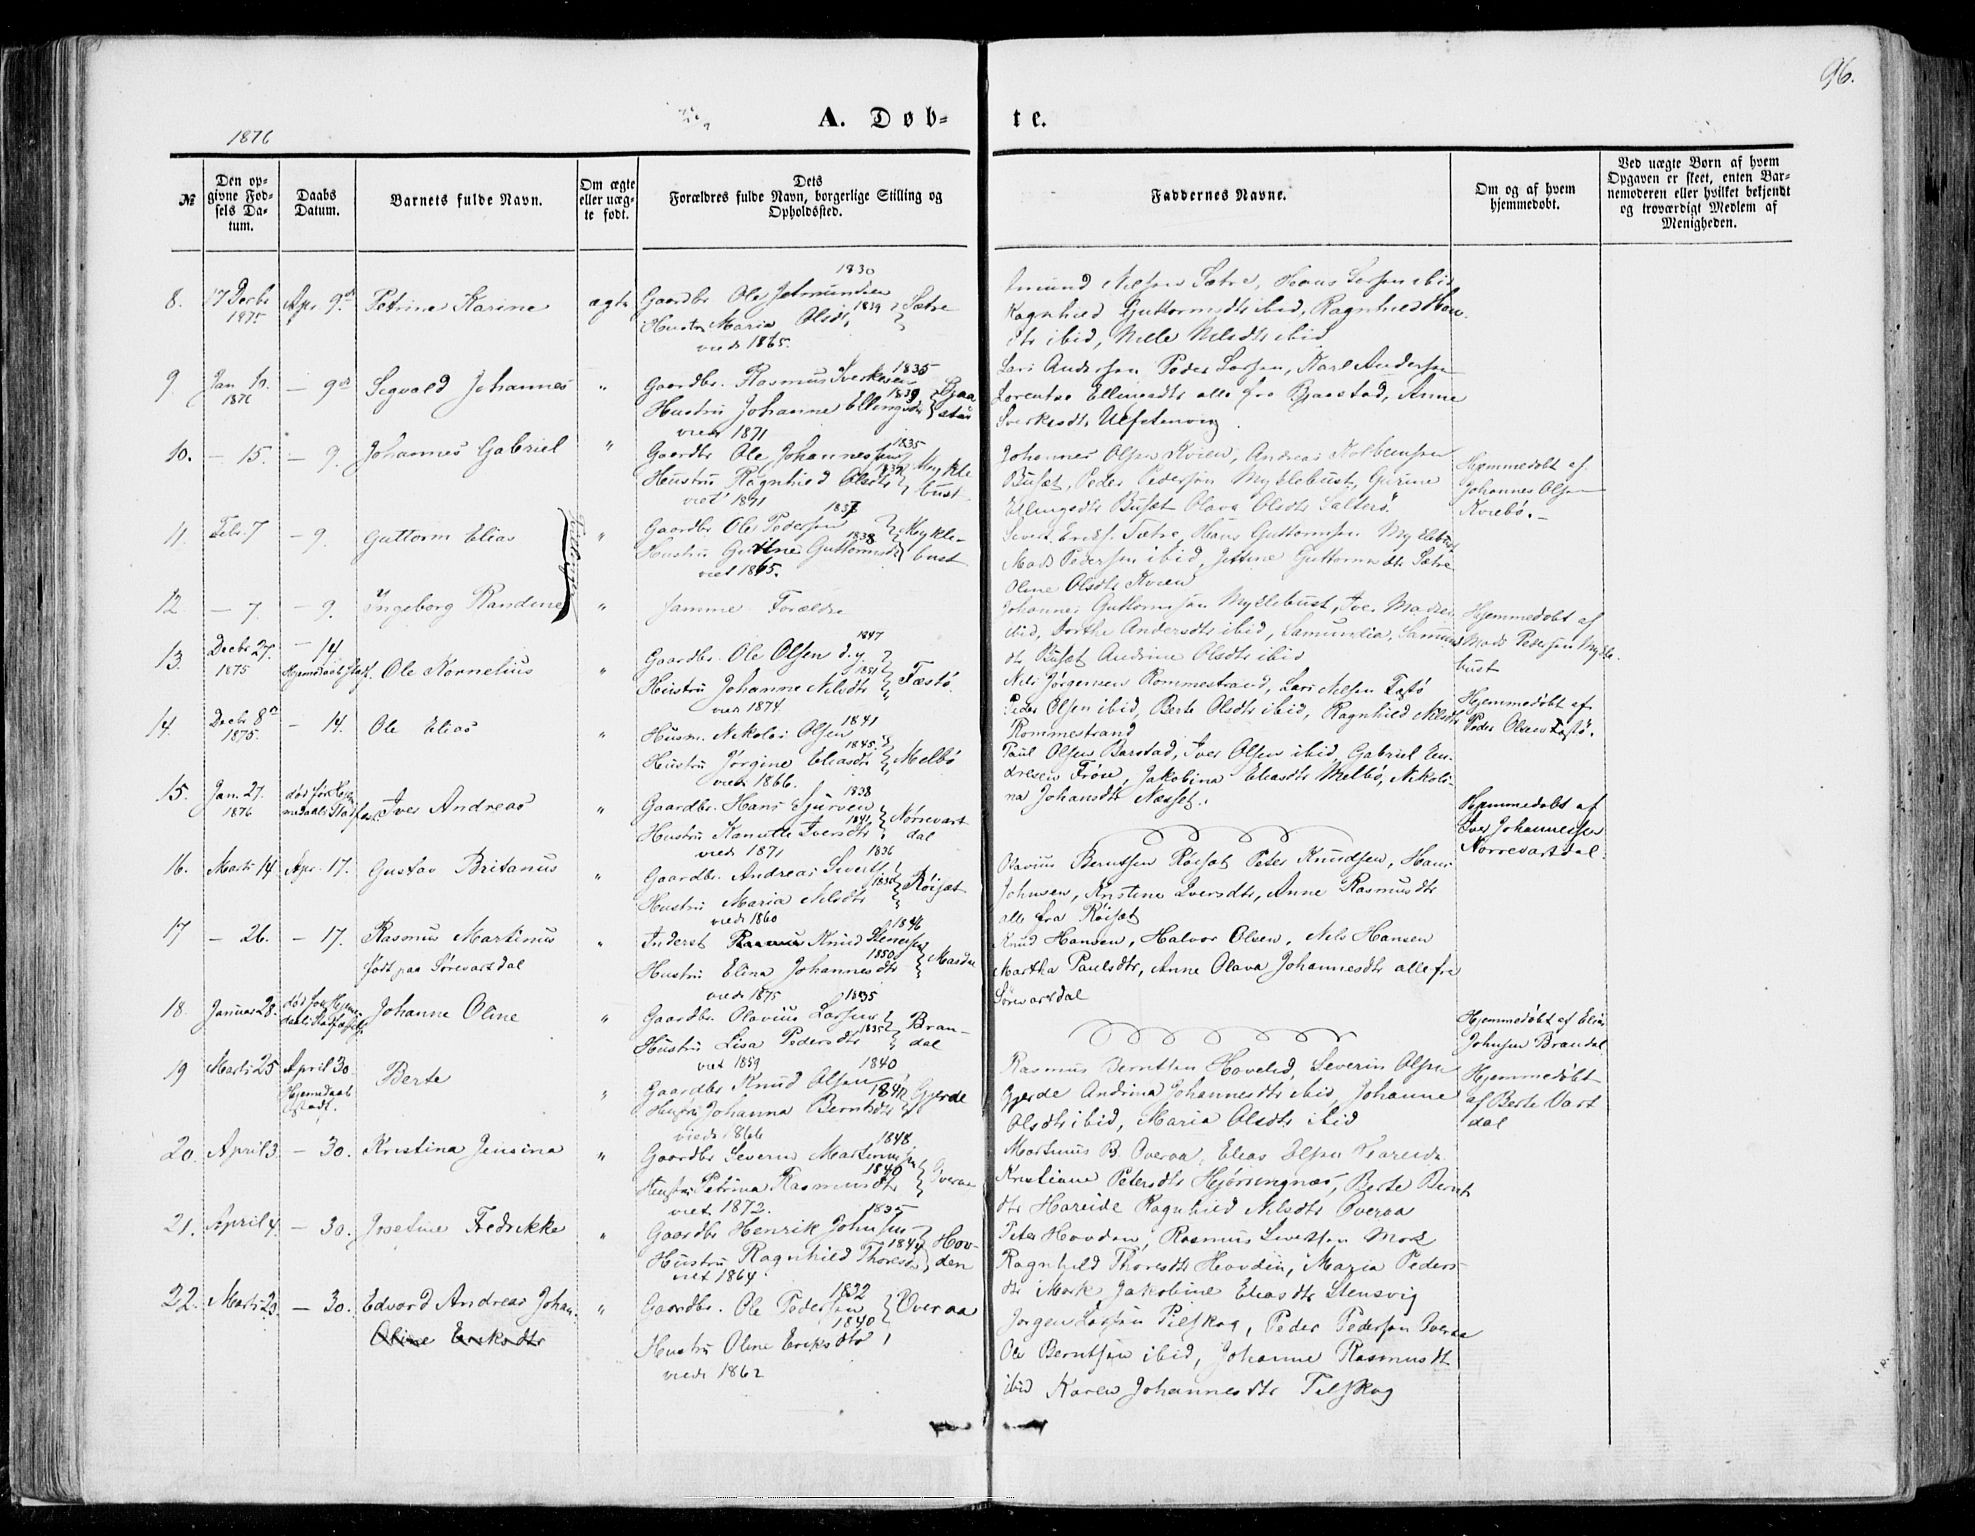 96.
A. Døb-
te.
1876
№
Den op-
givne Fød-
sels Da-
tum.
Daabs
Datum.
Barnets fulde Navn.
Om ægte
eller uæg-
te født.
Dets
Forældres fulde Navn, borgerlige Stilling og
Opholdssted.
Faddernes Navne.
Om og af hvem
hjemmedøbt.
Ved uægte Børn af hvem
Opgaven er skeet, enten Bar-
nemoderen eller hvilket bekjendt
og troværdigt Medlem af
Menigheden.
8. 17 Decbr 1875 Apr 9de Petrine Karine ægte
1830
Gaardbr Ole Jetmundsen
Hustru Maria Olsdtr 1839 Sætre
viede 1865.
Amund Nilsen Sætre, Hans Larsen ibid
Ragnhild Guttormsdtr ibid, Ragnhild
ibid, Nille Nilsdtr ibid
9. Jan 10. 1876 — 9de Segvald Johannes "
Gaardbr. Rasmus Sverkesen 1835
Hustru Johanne Ellingsdtr 1839 Bjaastad
viede 1871
Lars Andersen Peder Larsen, Karl Andersen
Lorentse Ellingsdtr alle fra Bjaastad, Anne
Sverkesdtr Ulfstenvig.
10. — 15. — 9. Johannes Gabriel "
Gaardbr Ole Johannessen 1835
Hustru Ragnhild Olsdtr Mykle
viet 1871 bust
Johannes Olsen Kvien, Andreas Kolbensen
Busæt, Peder Pedersen Myklebust, Gurine
Ellingsdtr Busæt Olava Olsdtr Salterö
Hjemmedøbt af
Johannes Olsen
Kviebø. —
11. Febr. 7 — 9. Guttorm Elias "
Gaardbr Ole Pedersen 1837
Hustru Gurine Guttormsdtr 1838 Mykle-
viet 1865. bust
Sivert Eriks. Sætre, Hans Guttormsen Myklebust
Mads Pedersen ibid, Jettine Guttormsdtr Sætre
Oline Olsdtr Kvien
12. — 7. — 9. Ingeborg Randine "
samme Forældre
Johannes Guttormsen Myklebust, Iver Madsen
ibid, Dorthe Andersdtr ibid, Samundia, Samunds
dtr Busæt Andrine Olsdtr ibid
Hjemmedøbt af
Mads Pedersen Mykle-
bust
13. Decbr 27. 1875 — 14. Hjemmedaab stadf. Ole Kornelius "
1847
Gaardbr. Ole Olsen d.y.
Hustru Johanne Nilsdtr 1851 Tæstø.
viet 1874
Nils Jørgensen Rommestrand, Lars Nilsen Tæstø
Peder Olsen ibid, Berte Olsdtr ibid, Ragnhild Nilsdtr
Rommestrand
Hjemmedøbt af
Peder Olsen Tæstø.
14. Decbr 8de 1875. — 14. Ole Elias "
Husm. Nikolai Olsen 1841
Hustru Jørgine Eliasdtr 1845. Melbö
viede 1866.
Paul Olsen Barstad, Iver Olsen ibid Gabriel En-
dresen Frøse, Jakobina Eliasdtr Melbö, Nikoli-
na Johansdtr Næsset.
15. Jan. 27. 1876 død før Hjem-
medaabs Stadfæst. Iver Andreas "
Gaardbr. Hans Sjursen 1838
Hustru Kanutte Iversdtr 1841 Nørrevart
viede 1871 dal
Hjemmedøbt af
Iver Johannessen
Nørrevartdal.
16. Marts 14 Apr. 17. Gustav Britanus "
1836
Gaardbr. Andreas Sivertsen
Hustru Maria Nilsdtr Röiset
viede 1860
Olavius Berntsen Röiset Peter Knudsen, Hans
Johnsen, Kristine Iversdtr, Anne Rasmusdtr
alle fra Röiset
17 — 26. — 17. Rasmus Martinus "
født paa Sørevartdal
1846
Inderst Knud Stenersen
Hustru Elina Johannesdtr 1850 Masdal
viede 1875
Knud Hansen, Halvor Olsen, Nils Hansen
Martha Paulsdtr, Anne Olava Johannesdtr alle fra
Sørevartdal
18. Januar 28. død før Hjemme-
daabs Stadfæstelse Johanne Oline "
1835
Gaardbr. Olavius Larsen
Hustru Lisa Pedersdtr 1835 Bran-
viet 1859 dal
Hjemmedøbt af Elias
Johnsen Brandal
19 Marts 25 April 30.
Hjemdaab
stadf. Berte "
1840
Gaardbr Knud Olsen
Hustru Johanna Berntsdtr Gjerde
viede 1866
Rasmus Berntsen Hovelid, Severin Olsen
Gjerde Andrina Johannesdtr ibid, Johanne
Olsdtr ibid, Maria Olsdtr ibid
Hjemmedøbt
af Berte Vart
dal
20. April 3. — 30. Kristina Jensina "
1848.
Gaardbr Severin Martinussen
Hustru Petrina Rasmusdtr 1840 Overaa
viet 1872.
Martinus B. Overaa, Elias Olsen Hareide
Kristiane Petersdtr Hjørungnæs, Berte Bernt
dtr Hareide Ragnhild Nilsdtr Overaa
21. April 4. — 30. Josefine Fredrikke "
1835
Gaardbr Henrik Johnsen
Hustru Ragnhild Thoresdtr 1844 Hov-
viet 1864. den
Peter Hovden, Rasmus Sivertsen Mork
Ragnhild Thoresdtr Hovden, Maria Peders-
dtr Mork Jakobine Eliasdtr Stensvig
22. Marts 20. — 30. Edvard Andreas Johan. "
Oline Eriksdtr
1832
Gaardbr. Ole Pedersen Overaa
1840
Hustru Oline Eriksdtr
viede 1862
Jørgen Larsen Pilskog, Peder Pedersen Overaa
Ole Berntsen ibid, Johanne Rasmusdtr
ibid Karen Johannesdtr Pilskog